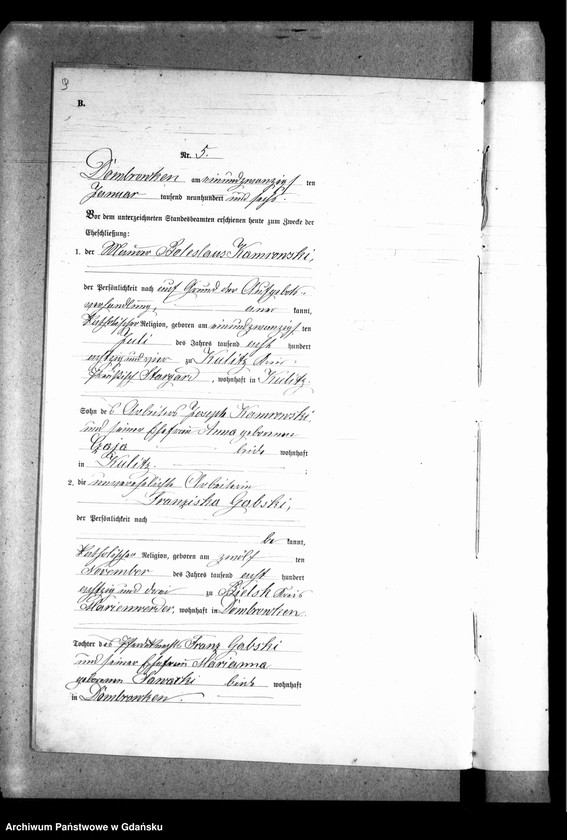 B.
Nr. 5.
Dombrowken am einundzwanzigsten
Januar tausend neunhundert und sechs.
Vor dem unterzeichneten Standesbeamten erschienen heute zum Zwecke der
Eheschließung:
1. der Maurer Boleslaus Kamrowski,
der Persönlichkeit nach auf Grund der Aufgebots-
verhandlung, aner kannt,
katholischer Religion, geboren am einundzwanzigsten
Juli des Jahres tausend acht hundert
achtzig und vier zu Kulitz Kreis
Preußisch Stargard, wohnhaft in Kulitz.
Sohn des Arbeiters Joseph Kamrowski,
und seiner Ehefrau Anna geborenen
Czaja beide wohnhaft
in Kulitz.
2. die unverehelichte Arbeiterin
Franziska Gabski,
der Persönlichkeit nach
be kannt,
katholischer Religion, geboren am zwölf ten
November des Jahres tausend acht hundert
achtzig und drei zu Bielsk Kreis
Marienwerder, wohnhaft in Dombrowken.
Tochter des Franz Gabski
und seiner Ehefrau Marianna
geborenen beide wohnhaft
in Dombrowken.
Archiwum Państwowe w Gdańsku